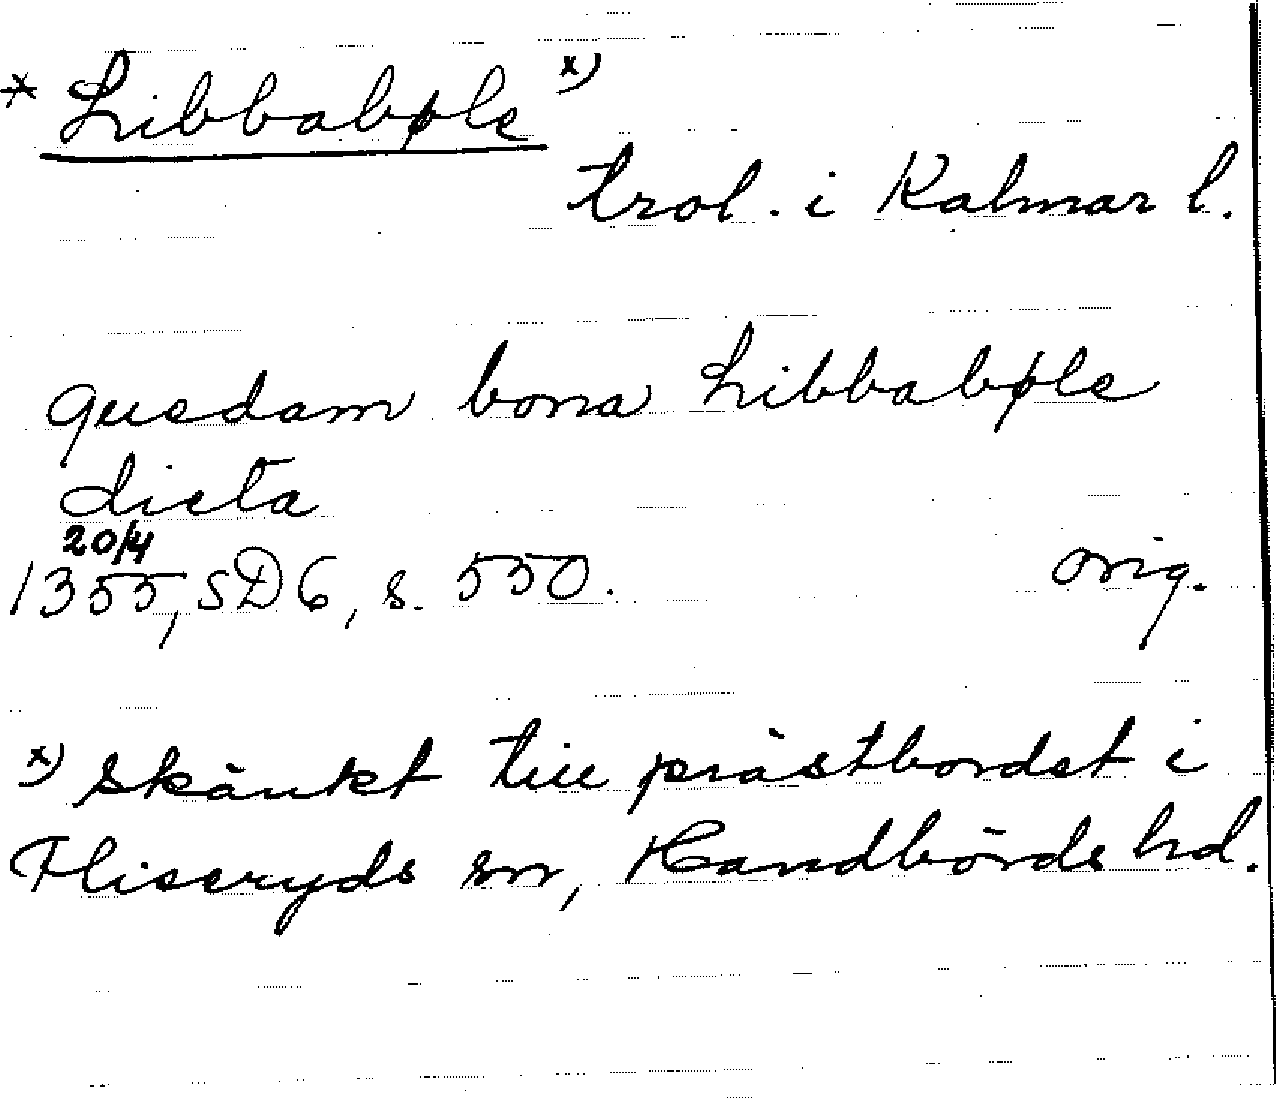 * Libbabøle x)
trol. i Kalmar l.
quedam bona Libbabøle
dicta
20/4
1355, SD 6, s. 550. orig.
x) Skänkt till prästbordet i
Fliseryds sn, Handbörds hd.